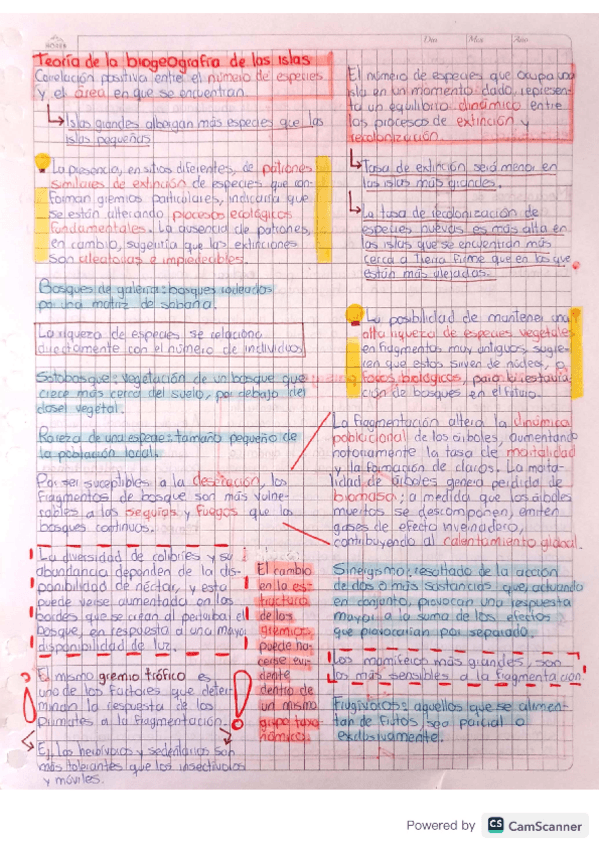 Teoría de la biogeografía de las islas
Correlación positiva entre el número de especies
y el área en que se encuentran
Islas grandes albergan más especies que las
islas pequeñas
La presencia, en sitios diferentes, de patrones
similares de extinción de especies que con-
forman gremios particulares, indicaría que
se están alterando procesos ecológicos
fundamentales. La ausencia de patrones,
en cambio, sugeriría que las extinciones
son aleatorias e impredecibles.
Bosques de galería: bosques rodeados
por una matriz de sabana.
La riqueza de especies se relaciona
directamente con el número de individuos
Sotobosque: vegetación de un bosque que
crece más cerca del suelo, por debajo del
dosel vegetal.
Rareza de una especie: tamaño pequeño de
la población local.
Por ser suceptibles a la desecación, los
fragmentos de bosque son más vulne-
rables a las sequías y fuegos que los
bosques continuos.
La diversidad de colibríes y su
abundancia dependen de la dis-
ponibilidad de néctar, y esta
puede verse aumentada en los
bordes que se crean al perturbar el
bosque, en respuesta a una mayor
disponibilidad de luz.
El mismo gremio trófico es
uno de los factores que deter-
minan la respuesta de los
primates a la fragmentación.
Ej. los herbívoros y sedentarios son
más tolerantes que los insectívoros
y móviles.
El cambio
en la es-
tructura
de los
gremios
puede ha-
cerse evi-
dente
dentro de
un mismo
grupo taxo-
nómico.
El número de especies que ocupa una
isla en un momento dado, represen-
ta un equilibrio dinámico entre
los procesos de extinción y
recolonización.
Tasa de extinción será menor en
las islas más grandes.
La tasa de recolonización de
especies nuevas es más alta en
las islas que se encuentran más
cerca a Tierra firme que en las que
están más alejadas.
La posibilidad de mantener una
alta riqueza de especies vegetales
en fragmentos muy antiguos, sugie-
ren que estos sirven de núcleos, o
focos biológicos, para la restaura-
ción de bosques en el futuro.
La fragmentación altera la dinámica
poblacional de los árboles, aumentando
notoriamente la tasa de mortalidad
y la formación de claros. La morta-
lidad de árboles genera pérdida de
biomasa; a medida que los árboles
muertos se descomponen, emiten
gases de efecto invernadero,
contribuyendo al calentamiento global.
Sinergismo: resultado de la acción
de dos o más sustancias que, actuando
en conjunto, provocan una respuesta
mayor a la suma de los efectos
que provocarían por separado.
Los mamíferos más grandes, son
los más sensibles a la fragmentación
Frugívoros: aquellos que se alimen-
tan de frutos, sea parcial o
exclusivamente.
Powered by CS CamScanner